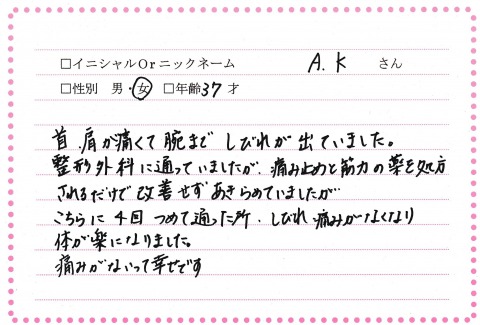 □イニシャルOrニックネーム A.K さん
□性別 男・女 □年齢37才
首、肩が痛くて腕まで しびれが出ていました。
整形外科に通っていましたが、痛み止めと筋力の薬を処方
されるだけで改善せずあきらめていましたが
こちらに4回つめて通った所、しびれ、痛みがなくなり
体が楽になりました。
痛みがないって幸せです